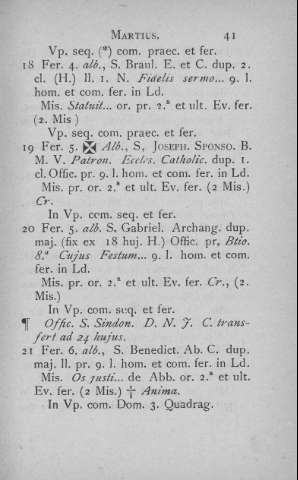 Martius. 41
Vp. seq. (*) com. praec. et fer.
18 Fer. 4. alb., S. Braul. E. et C. dup. 2.
cl. (H.) ll. 1. N. Fidelis sermo... 9. l.
hom. et com. fer. in Ld.
Mis. Statuit... or. pr. 2.ª et ult. Ev. fer.
(2. Mis)
Vp. seq. com. praec. et fer.
19 Fer. 5. ✠ Alb., S. Joseph. Sponso. B.
M. V. Patron. Eccles. Catholic. dup. 1.
cl. Offic. pr. 9. l. hom. et com. fer. in Ld.
Mis. pr. or. 2.ª et ult. Ev. fer. (2 Mis.)
Cr.
In Vp. com. seq. et fer.
20 Fer. 5. alb. S. Gabriel. Archang. dup.
maj. (fix ex 18 huj. H.) Offic. pr, Btio.
8.ª Cujus Festum... 9. l. hom. et com.
fer. in Ld.
Mis. pr. or. 2.ª et ult. Ev. fer. Cr., (2.
Mis.)
In Vp. com. suq. et fer.
¶ Offic. S. Sindon. D. N. J. C. trans-
fert ad 24 hujus.
21 Fer. 6. alb., S. Benedict. Ab. C. dup.
maj. ll. pr. 9. l. hom. et com. fer. in Ld.
Mis. Os justi... de Abb. or. 2.ª et ult.
Ev. fer. (2 Mis.) † Anima.
In Vp. com. Dom. 3. Quadrag.